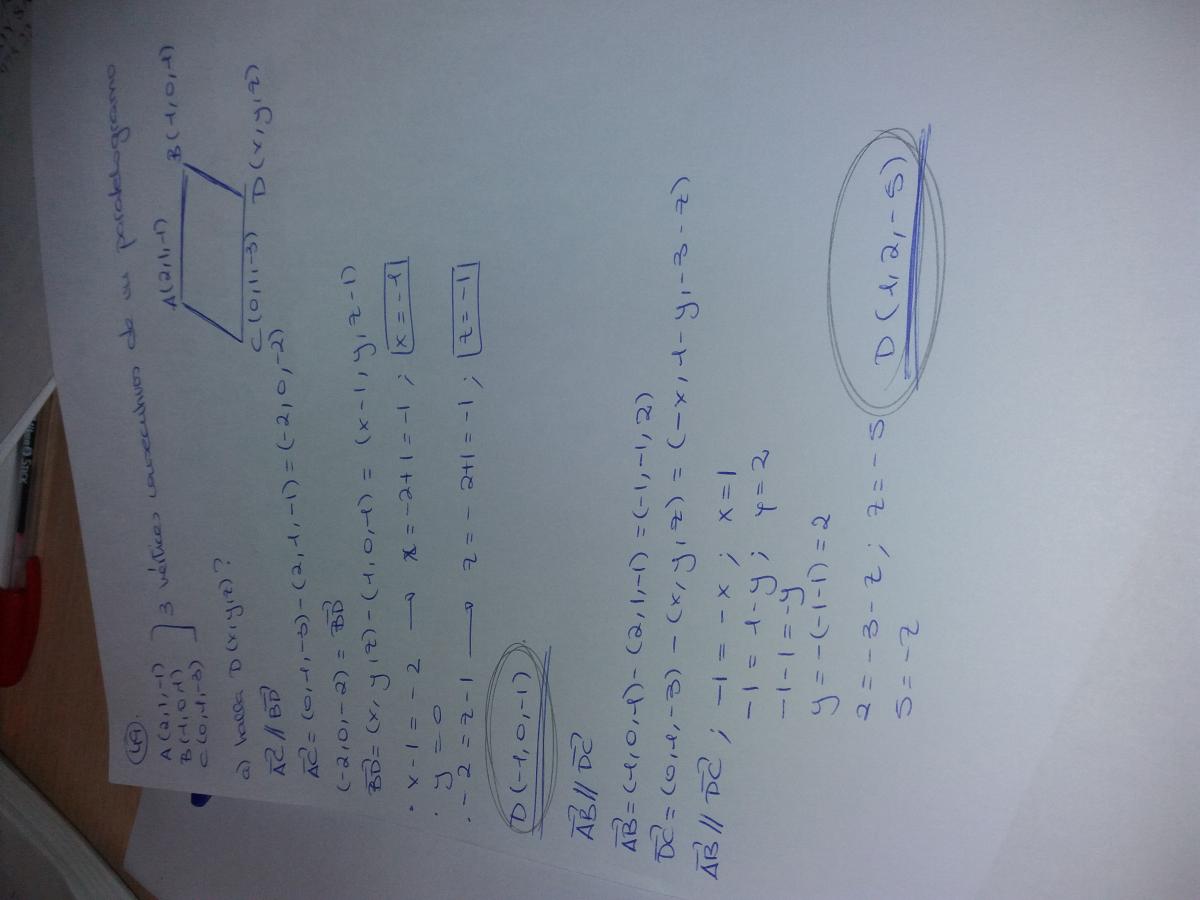 1A
A(2,1,-1)
B(1,0,1)
C(0,1,-3)
3 vértices consecutivos de un paralelogramo
A(2,1,-1)
B(1,0,1)
C(0,1,-3)
D(x,y,z)
a) halla D(x,y,z)?
AC // BD
AC = (0,1,-3) - (2,1,-1) = (-2,0,-2)
(-2,0,-2) = BD
BD = (x,y,z) - (1,0,1) = (x-1,y,z-1)
· x-1 = -2 → x = -2+1 = -1 ; x = -1
· y = 0
· -2 = z-1 → z = -2+1 = -1 ; z = -1
D(-1,0,-1)
AB // DC
AB = (1,0,1) - (2,1,-1) = (-1,-1,2)
DC = (0,1,-3) - (x,y,z) = (-x,1-y,-3-z)
AB // DC ; -1 = -x ; x = 1
-1 = 1-y ; y = 2
-1-1 = -y
y = -(-1-1) = 2
2 = -3-z ; z = -5
5 = -z
D(1,2,-5)